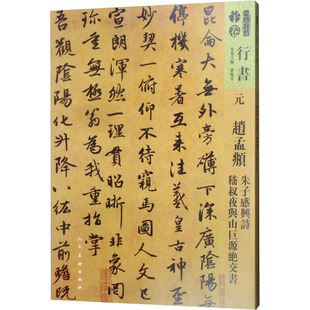 行書
元
趙孟頫
朱子感興詩
嵇叔夜與山巨源絶交書
昆侖大無外旁礴下深廣陰陽無
停機寒暑互来往羲皇古神聖
妙契一俯仰不待窺馬圖人文已
宣朗渾然一理貫昭晰非象罔
珍重無極翁為我重指掌
吾觀陰陽化升降八紘中前瞻既
人民美術出版社